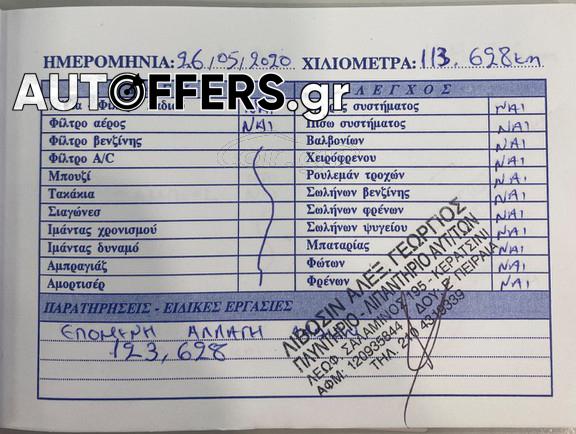 ΗΜΕΡΟΜΗΝΙΑ: 26/05/2020 ΧΙΛΙΟΜΕΤΡΑ: 113.628 km
AUTOFFERS.gr
ΛΕΓΧΟΣ
συστήματος ΝΑΙ
Φίλτρο αέρος ΝΑΙ Πίσω συστήματος ΝΑΙ
Φίλτρο βενζίνης Βαλβονίων ΝΑΙ
Φίλτρο A/C Χειρόφρενου ΝΑΙ
Μπουζί Ρουλεμάν τροχών ΝΑΙ
Τακάκια Σωλήνων βενζίνης ΝΑΙ
Σιαγώνες Σωλήνων φρένων ΝΑΙ
Ιμάντας χρονισμού Σωλήνων ψυγείου ΝΑΙ
Ιμάντας δυναμό Μπαταρίας ΝΑΙ
Αμπραγιάζ Φώτων ΝΑΙ
Αμορτισέρ Φρένων ΝΑΙ
ΠΑΡΑΤΗΡΗΣΕΙΣ - ΕΙΔΙΚΕΣ ΕΡΓΑΣΙΕΣ
ΕΠΟΜΕΝΗ ΑΛΛΑΓΗ
123,628
ΛΙΒΟΣΙΝ ΑΛΕΞ. ΓΕΩΡΓΙΟΣ
ΠΛΥΝΤΗΡΙΟ - ΛΙΠΑΝΤΗΡΙΟ ΑΥΤ/ΤΩΝ
ΛΕΩΦ. ΣΑΛΑΜΙΝΟΣ 195 - ΚΕΡΑΤΣΙΝΙ
ΑΦΜ: 120935844 ΔΟΥ: Ε' ΠΕΙΡΑΙΑ
ΤΗΛ. 210 4319339